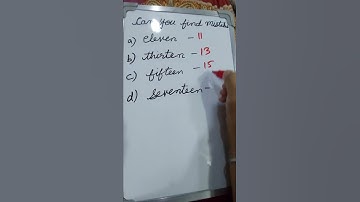 Can You find Mistak
a) eleven - 11
b) thirten - 13
c) fifteen - 15
d) Seventeen -